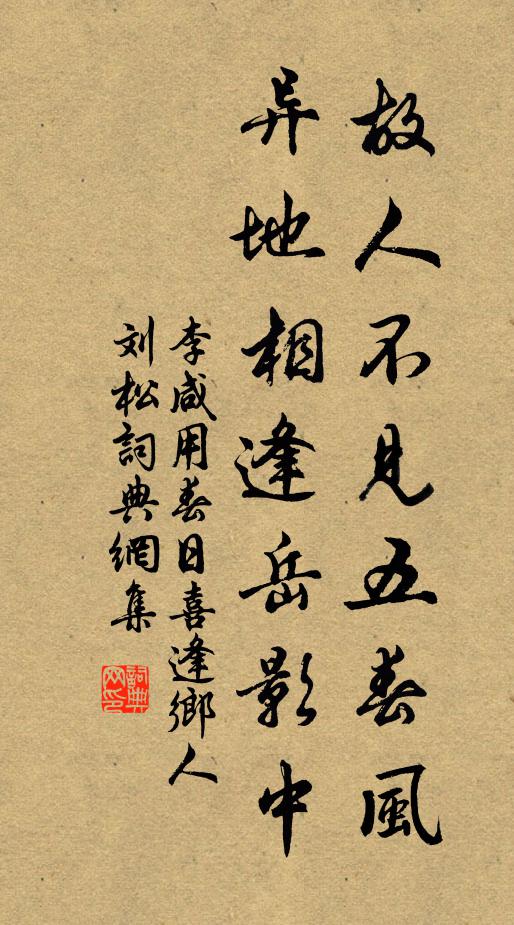 故人不見五春風
异地相逢岳影中
李咸用春日喜逢鄉人
刘松詞典網集
詞典网印